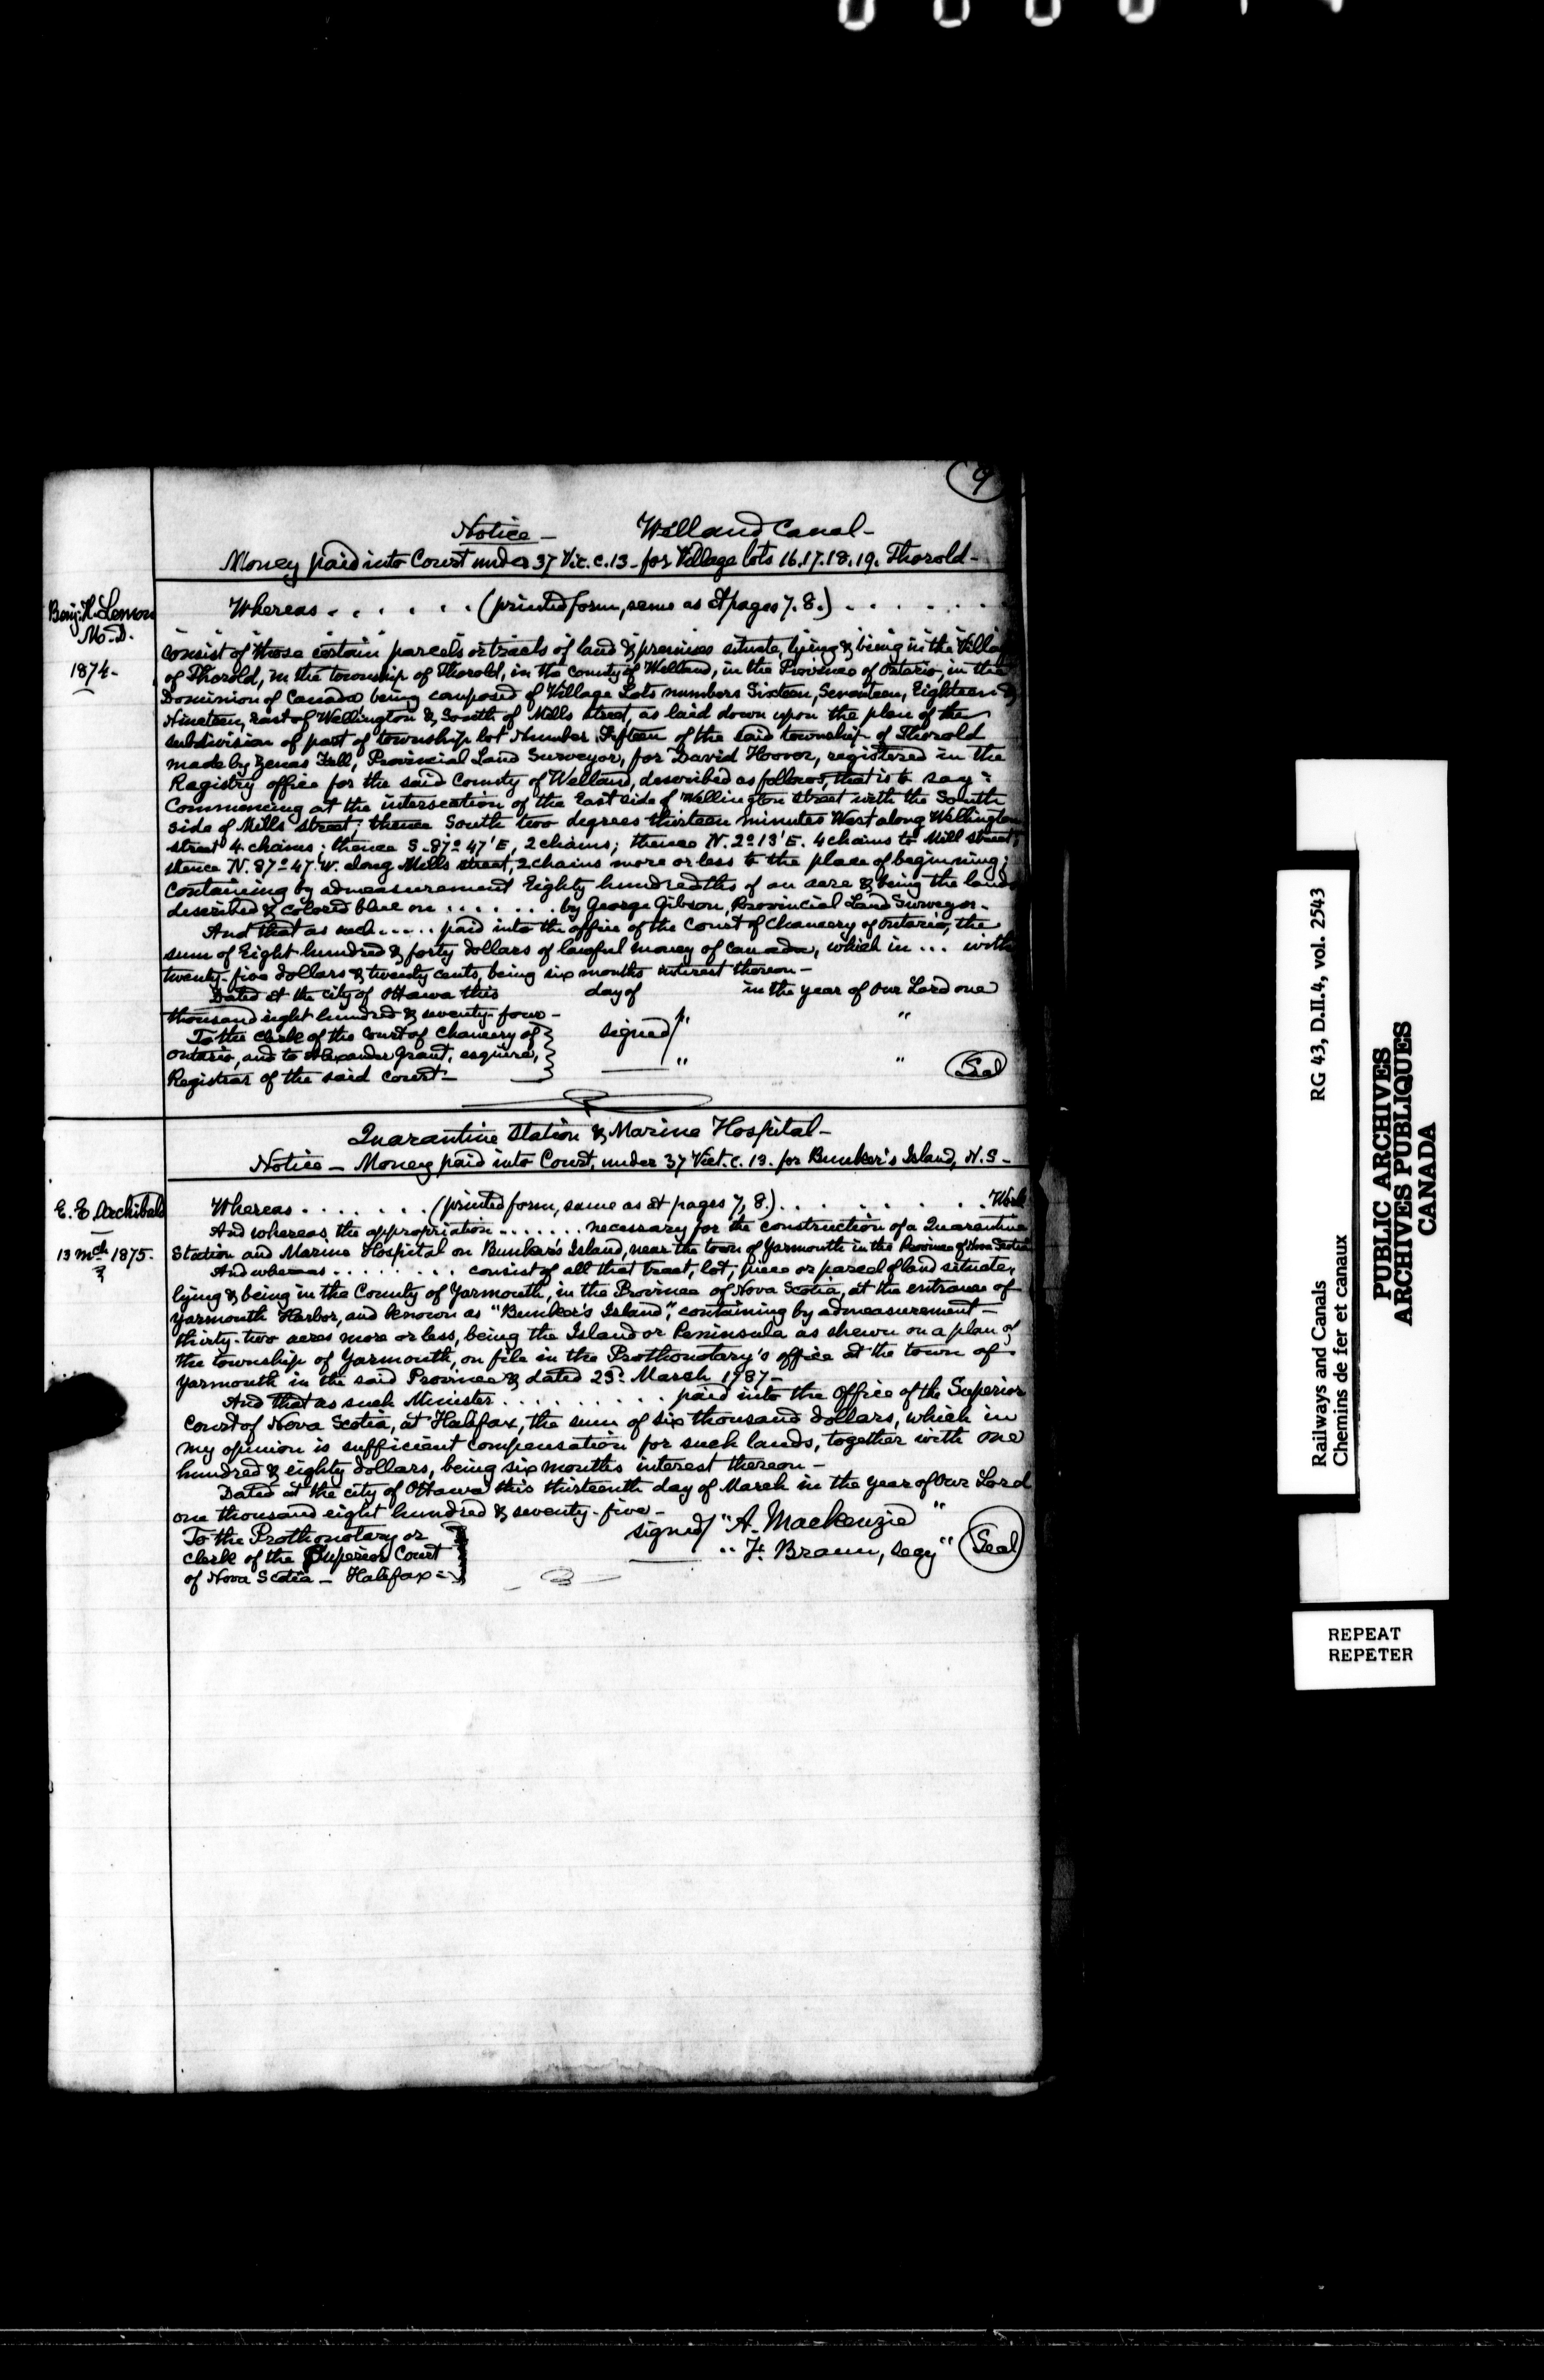 9
Notice - Welland Canal -
Money paid into Court under 37 Vic. c. 13 - for Village lots 16.17.18.19. Thorold -
Benj. H. Lemon
M.D.
1874 -
Whereas . . . . . . (printed form, same as at pages 7. 8.) . . . . . . .
consist of those certain parcels or tracts of land & premises situate, lying & being in the Village
of Thorold, in the township of Thorold, in the County of Welland, in the Province of Ontario, in the
Dominion of Canada being composed of Village Lots numbers Sixteen, Seventeen, Eighteen &
Nineteen, East of Wellington & South of Mills street, as laid down upon the plan of the
subdivision of part of township lot Number Fifteen of the said township of Thorold
made by Zenas Fell, Provincial Land Surveyor, for David Hoover, registered in the
Registry office for the said County of Welland, described as follows, that is to say:
Commencing at the intersection of the East side of Wellington street with the South
side of Mills street; thence South two degrees thirteen minutes West along Wellington
street 4 chains; thence S. 87° 47' E, 2 chains; thence N. 2° 13' E. 4 chains to Mill street;
thence N. 87° 47' W. along Mills street, 2 chains more or less to the place of beginning;
Containing by admeasurement Eighty hundredths of an acre & being the lands
described & colored blue on . . . . . . . by George Gibson, Provincial Land Surveyor.
And that as such . . . . . paid into the office of the Court of Chancery of Ontario, the
sum of Eight hundred & forty dollars of lawful money of Canada, which in ... with
twenty-five dollars & twenty cents, being six months interest thereon -
Dated at the city of Ottawa this day of in the year of Our Lord one
thousand eight hundred & seventy-four -
To the Clerk of the Court of Chancery of
Ontario, and to Alexander Grant, esquire,
Registrar of the said court -
signed/ " "
" "
Seal
Quarantine Station & Marine Hospital -
Notice - Money paid into Court, under 37 Vict. c. 13. for Bunker's Island, N.S -
E. E. Archibald
13 Mch 1875.
Whereas . . . . . . . (printed form, same as at pages 7, 8.) . . . . . . . . . Work
And whereas the appropriation . . . . . . . necessary for the construction of a Quarantine
Station and Marine Hospital on Bunker's Island, near the town of Yarmouth in the Province of Nova Scotia
And whereas . . . . . . . . . consist of all that tract, lot, piece or parcel of land situate,
lying & being in the County of Yarmouth, in the Province of Nova Scotia, at the entrance of
Yarmouth Harbor, and known as "Bunker's Island", containing by admeasurement -
thirty-two acres more or less, being the Island or Peninsula as shewn on a plan of
the township of Yarmouth, on file in the Prothonotary's office at the town of
Yarmouth in the said Province & dated 23d March 1787 -
And that as such Minister . . . . . . . . . paid into the Office of the Superior
Court of Nova Scotia, at Halifax, the sum of six thousand dollars, which in
my opinion is sufficient compensation for such lands, together with one
hundred & eighty dollars, being six months interest thereon -
Dated at the city of Ottawa this thirteenth day of March in the year of Our Lord
one thousand eight hundred & seventy-five -
To the Prothonotary or
Clerk of the Superior Court
of Nova Scotia - Halifax -
signed/ "A. Mackenzie"
" F. Braun, Secy"
Seal
Railways and Canals RG 43, D.II.4, vol. 2543
Chemins de fer et canaux
PUBLIC ARCHIVES
ARCHIVES PUBLIQUES
CANADA
REPEAT
REPETER